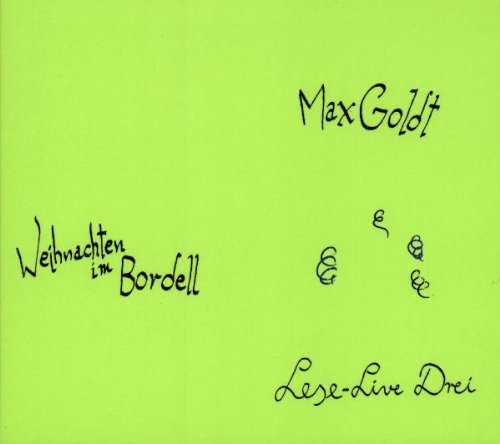 Max Goldt
Weihnachten
im
Bordell
Lese-Live Drei